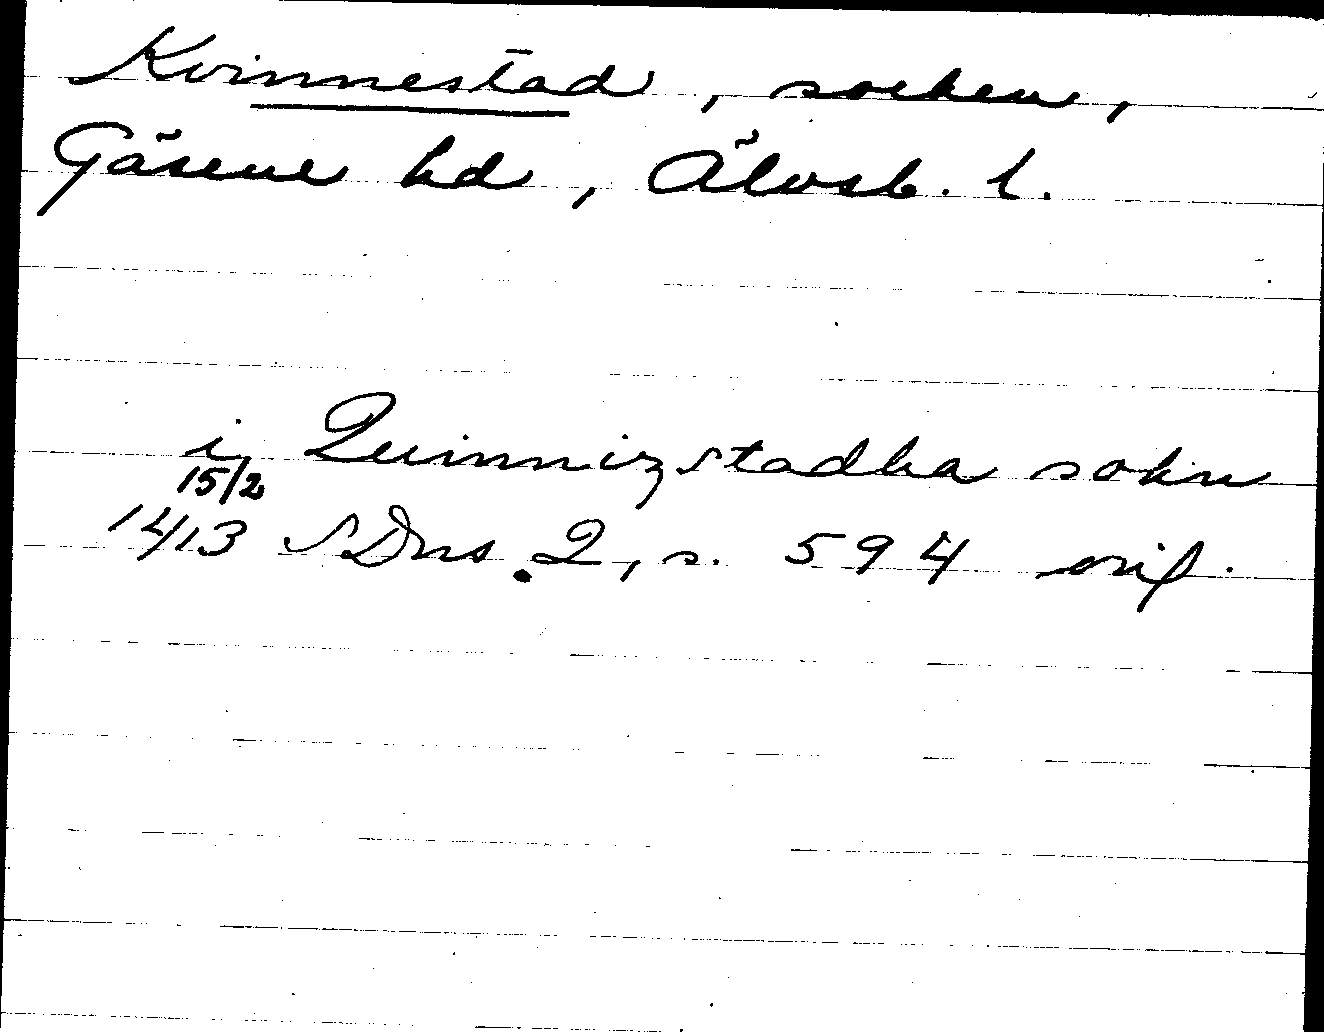 Kvinnestad, socken,
Gäsene hd, Älvsb. l.
i Quinnizstadha sokn
15/2
1413 SDns 2, s. 594 orig.